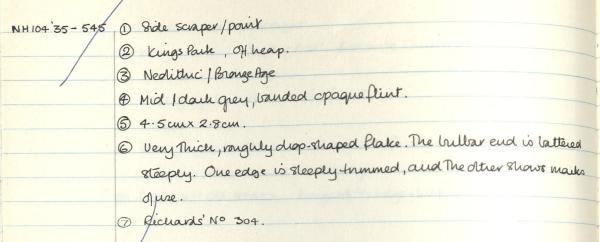 NH104'35-545 ① Side scraper/point
② Kings Park, Off heap.
③ Neolithic/Bronze Age
④ Mid/dark grey, banded opaque flint.
⑤ 4.5cm x 2.8cm.
⑥ Very thick, roughly drop-shaped flake. The bulbar end is battered
steeply. One edge is steeply trimmed, and the other shows marks
of use.
⑦ Richards' No 304.